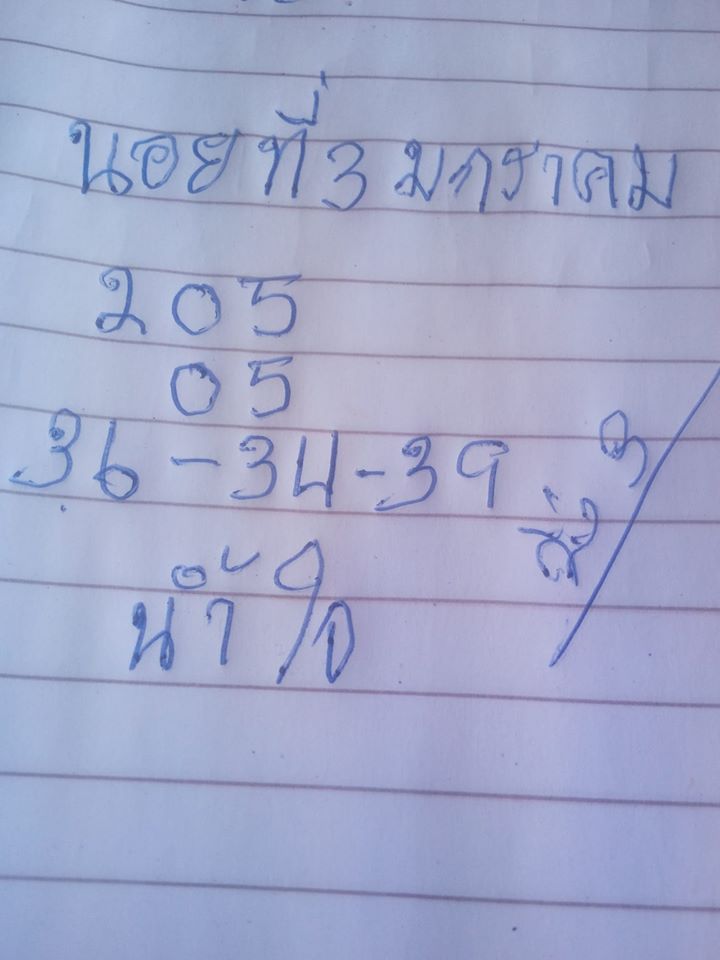 นอย ที่ 3 มกราคม
205
05
36-34-39
น้ำใจ